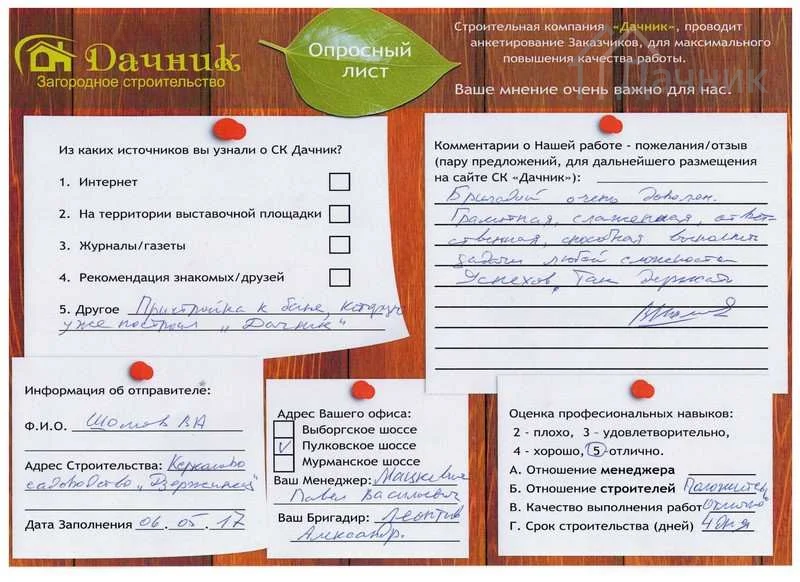 Дачник
Загородное строительство
Опросный
лист
Строительная компания «Дачник», проводит
анкетирование Заказчиков, для максимального
повышения качества работы.
Ваше мнение очень важно для нас.
Дачник
Из каких источников вы узнали о СК Дачник?
1. Интернет
2. На территории выставочной площадки
3. Журналы/газеты
4. Рекомендация знакомых/друзей
5. Другое Пристройка к бане, которую
уже построил „Дачник"
Комментарии о Нашей работе - пожелания/отзыв
(пару предложений, для дальнейшего размещения
на сайте СК «Дачник»):
Бригадой очень доволен.
Грамотная, слаженная, ответ-
ственная, способная выполнить
задачи любой сложности
Успехов, Так держать
Информация об отправителе:
Ф.И.О. ВА
Адрес Строительства:
садоводство „Дзержинец"
Дата Заполнения 06.05.17
Адрес Вашего офиса:
Выборгское шоссе
Пулковское шоссе
Мурманское шоссе
Ваш Менеджер: Мацкевич
Павел Васильевич
Ваш Бригадир:
Александр.
Оценка професиональных навыков:
2 - плохо, 3 - удовлетворительно,
4 - хорошо, 5 - отлично.
А. Отношение менеджера
Б. Отношение строителей
В. Качество выполнения работ Отлично
Г. Срок строительства (дней) 4 дня